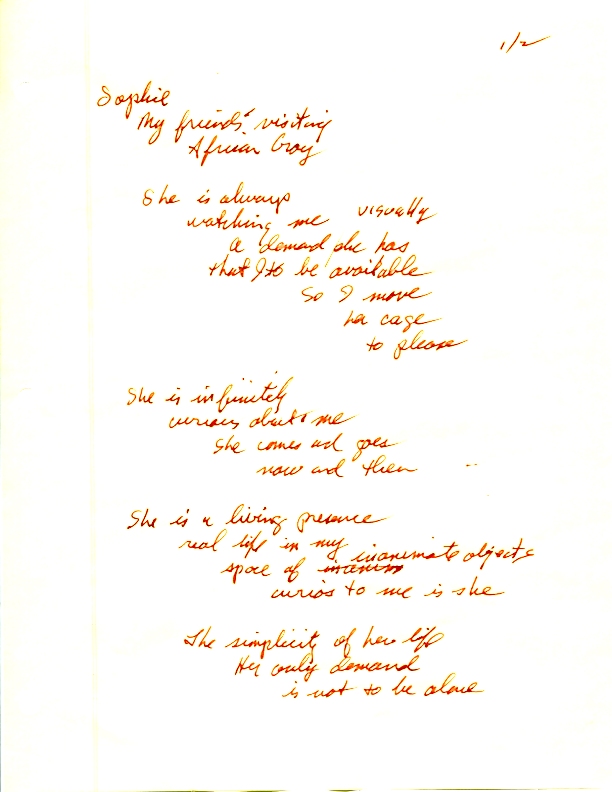 1/2
Sophie
My friends' visiting
African Gray
She is always
watching me visually
a demand she has
that I to be available
So I move
her cage
to please
She is infinitely
curious about me
She comes and goes
now and then
She is a living presence
real life in my
space of inanimate objects
curios to me is she
The simplicity of her life
Her only demand
is not to be alone